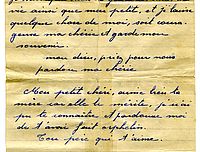 vie ainsi que mon petit, et je laisse
quelque chose de moi, soit coura-
geuse ma chérie et garde mon
souvenir.
mon dieu, priez pour nous
pardon ma chérie
Mon petit chéri, aime bien ta
mère car elle le mérite, j'ai
pu te connaître et pardonne moi
de t'avoir fait orphelin.
Ton père qui t'aime.